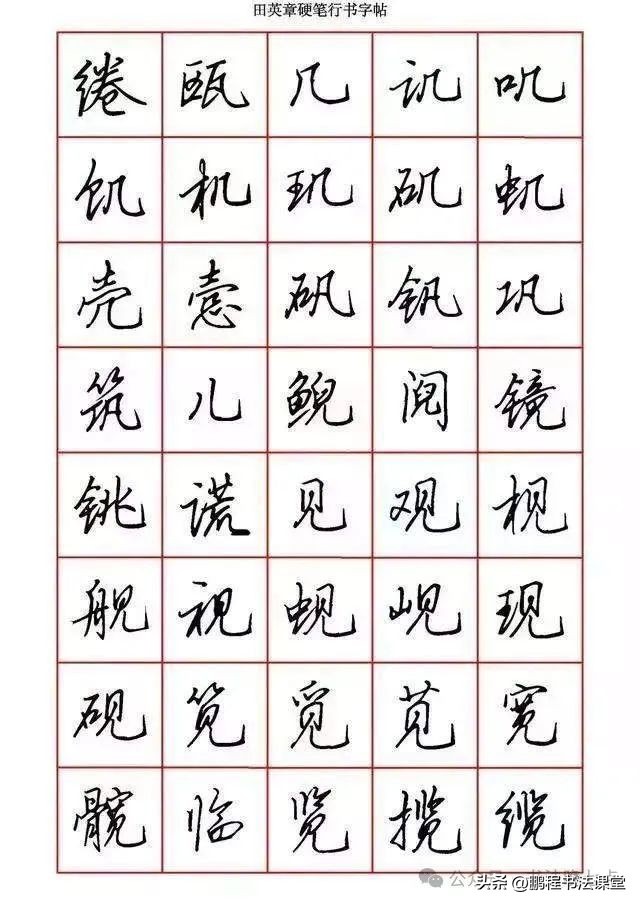 田英章硬笔行书字帖
绻 瓯 几 讥 叽
饥 机 玑 矶 虮
壳 悫 矾 钒 巩
筑 儿 鲵 阋 镜
铫 谎 见 观 枧
舰 视 蚬 岘 现
砚 笕 觅 苋 宽
髋 临 览 揽 缆
头条 @鹏程书法课堂